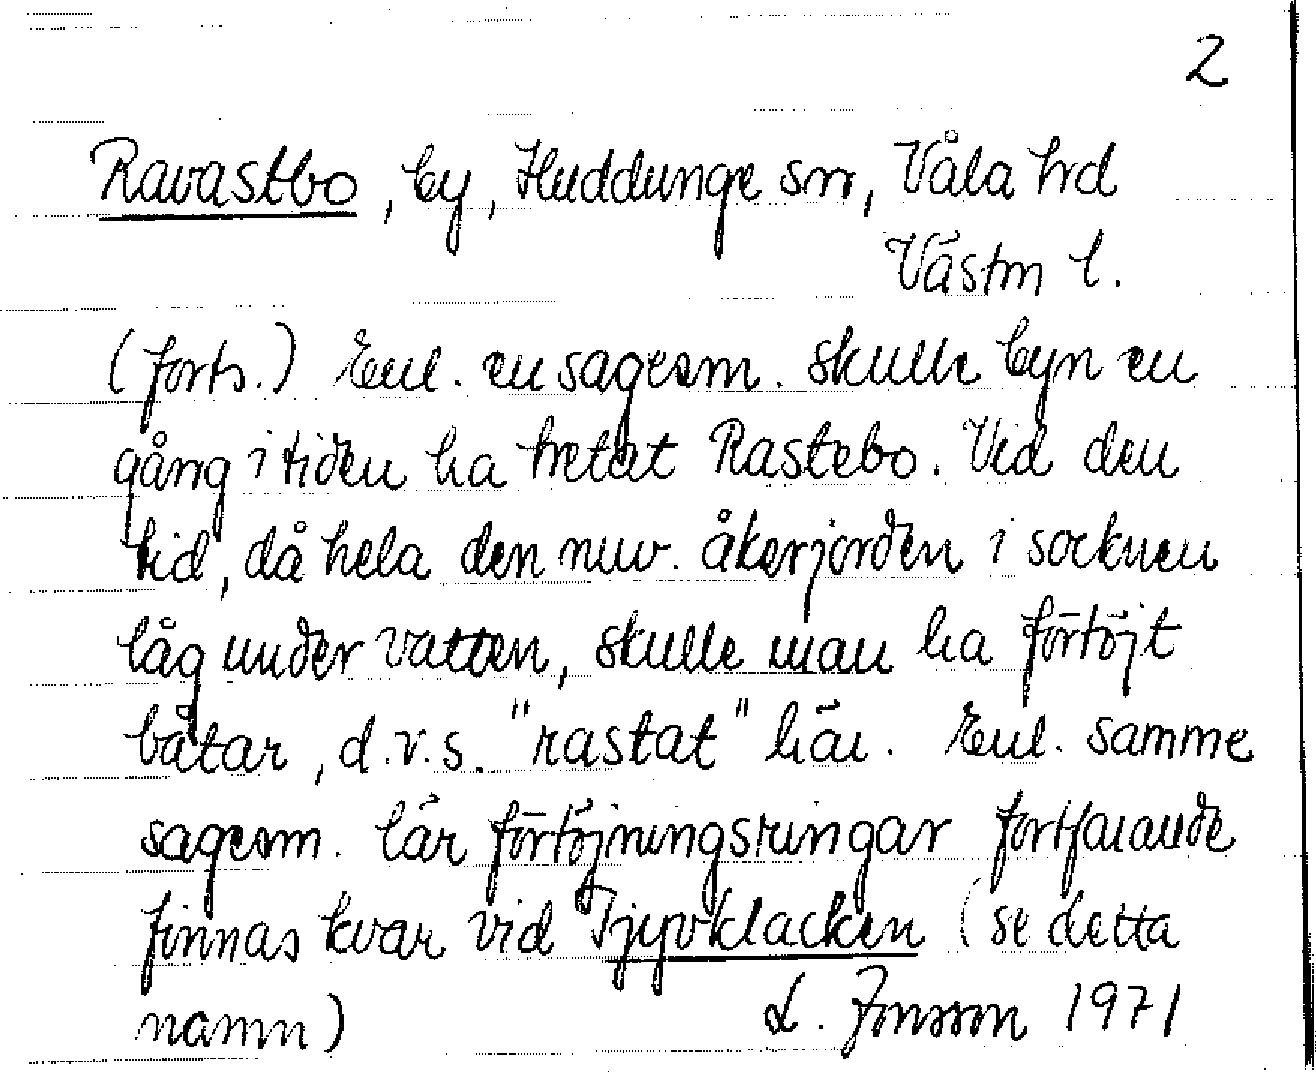 2
Ravastbo, by, Huddunge sn, Våla hd
Västm l.
(forts.) Enl. en sagesm. skulle byn en
gång i tiden ha hetat Rastebo. Vid den
tid, då hela den nuv. åkerjorden i socknen
låg under vatten, skulle man ha förtöjt
båtar, d.v.s. "rastat" här. Enl. samme
sagesm. lär förtöjningsringar fortfarande
finnas kvar vid Tjyvklacken (se detta
namn) L. Jonsson 1971